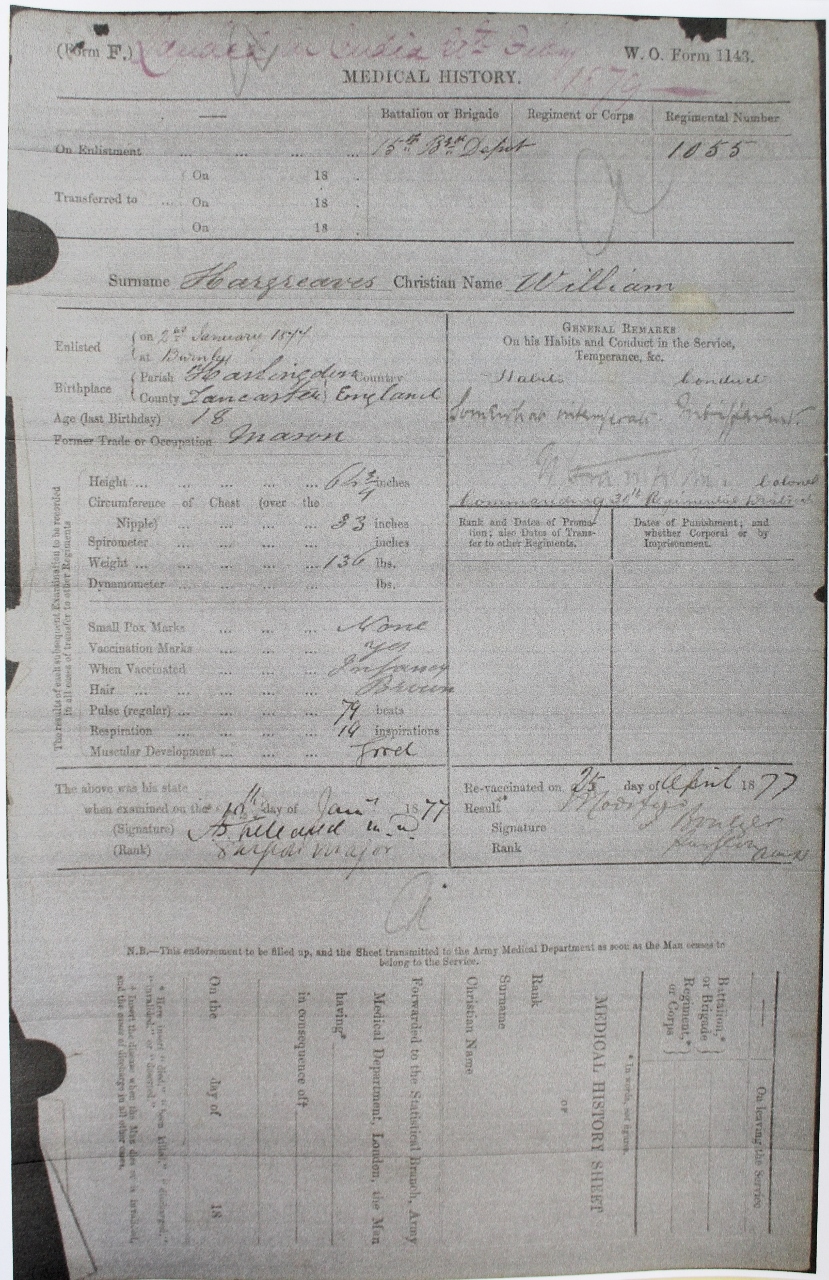 (Form F.) Landed in India 27th Feby W. O. Form 1143.
1879
MEDICAL HISTORY.
Battalion or Brigade Regiment or Corps Regimental Number
On Enlistment ... ... ... ... 15th Bde Depot 1055
On 18 .
Transferred to ... On 18 .
On 18 .
Surname Hargreaves Christian Name William
Enlisted on 2nd January 1877
at Burnley
Birthplace Parish Haslingden Country
County Lancaster England
Age (last Birthday) 18
Former Trade or Occupation Mason
The results of each subsequent Examination to be recorded
in all cases of transfer to other Regiments
Height ... ... ... ... 64 3/4 inches
Circumference of Chest (over the
Nipple) ... ... ... 33 inches
Spirometer ... ... ... inches
Weight ... ... ... ... 136 lbs.
Dynamometer ... ... ... lbs.
Small Pox Marks ... ... ... None
Vaccination Marks ... ... ... Yes
When Vaccinated ... ... ... Infancy
Hair ... ... ... ... Brown
Pulse (regular) ... ... ... ... beats
Respiration ... ... ... inspirations
Muscular Development ... ... Good
The above was his state
when examined on the day of Jany 1877
(Signature)
(Rank) Surgeon Major
GENERAL REMARKS
On his Habits and Conduct in the Service,
Temperance, &c.
Habits Conduct
Somewhat intemperate. Indifferent.
Colonel
Commanding 30th Regimental District
Rank and Dates of Promotion; also Dates of Transfer to other Regiments.
Dates of Punishment; and whether Corporal or by Imprisonment.
Re-vaccinated on 25 day of April 1877
Result
Signature
Rank Surgeon
N.B.—This endorsement to be filled up, and the Sheet transmitted to the Army Medical Department as soon as the Man ceases to
belong to the Service.
On leaving the Service
Battalion,*
or Brigade
Regiment,*
or Corps
* In words, not figures.
MEDICAL HISTORY SHEET
OF
Rank
Surname
Christian Name
Forwarded to the Statistical Branch, Army
Medical Department, London, the Man
having*
in consequence of†
On the day of 18
* Here insert "died," "been killed," "discharged,"
"invalided," or "deserted."
† Insert the disease when the Man dies or is invalided,
and the cause of discharge in all other cases.